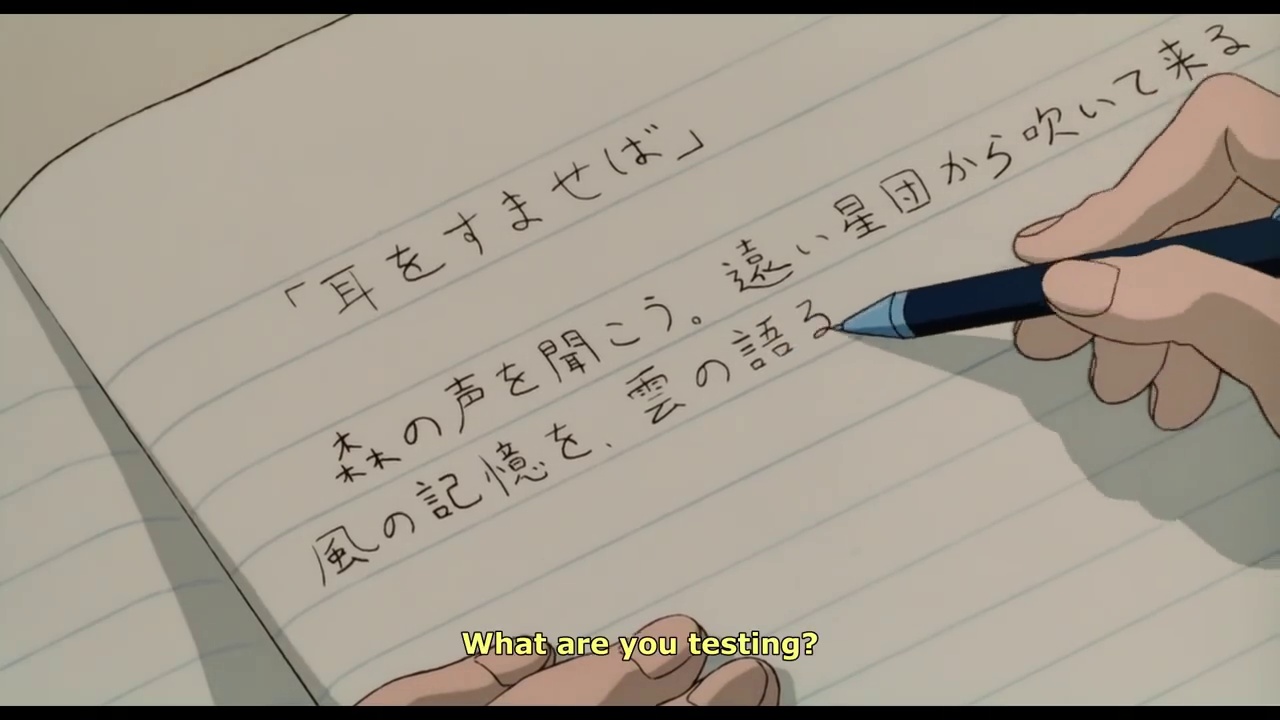 「耳をすませば」
森の声を聞こう。遠い星団から吹いて来る
風の記憶を、雲の語る
What are you testing?